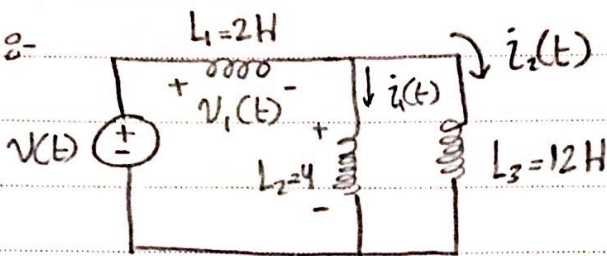 8-
L₁=2H
i₂(t)
+ V₁(t) -
i₁(t)
V(t)
+
-
+
L₂=4
-
L₃=12H